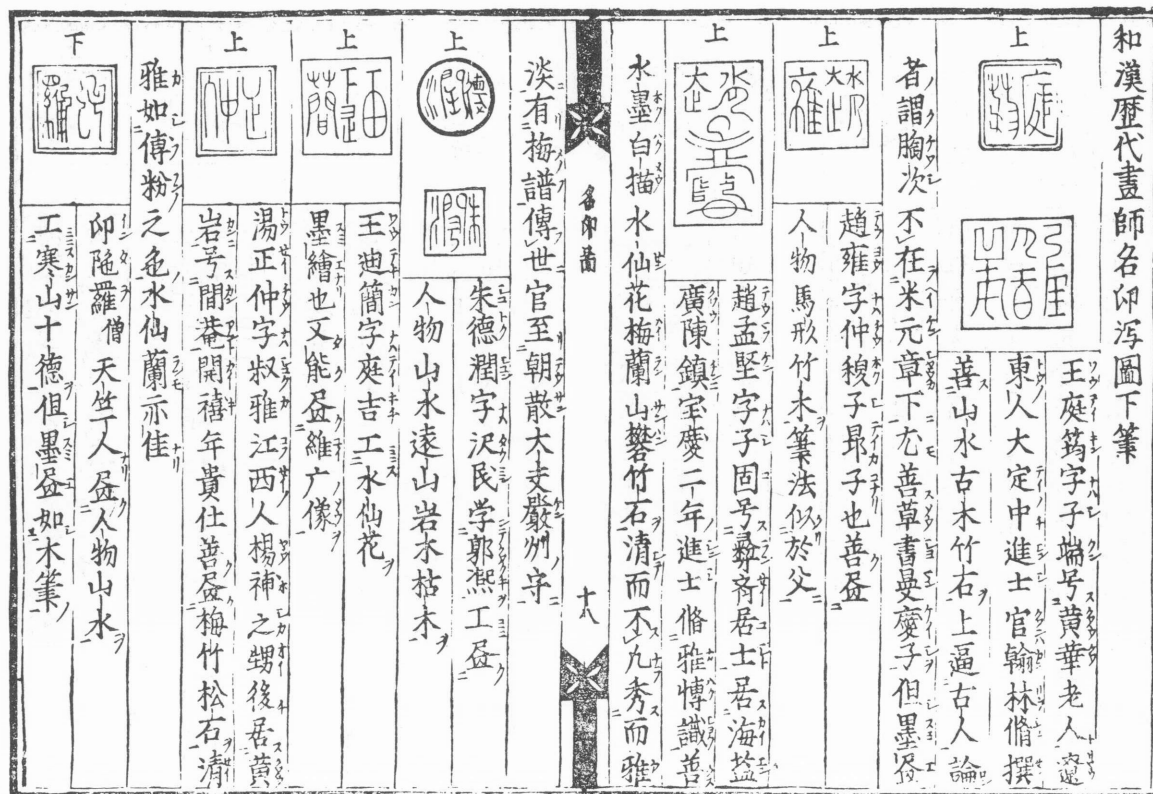 和漢歷代畫師名印冩圖下筆
上
王庭筠字子端号黄華老人遼
東人大定中進士官翰林脩撰
善山水古木竹石上逼古人論
者謂胸次不在米元章下尤善草書
但墨昼
上
趙雍字仲穆子昻子也善昼
人物馬形竹木筆法似於父
上
趙孟堅字子固号彝斎居士居海塩
廣陳鎮宝慶二年進士脩雅博識善
水墨白描水仙花梅蘭山礬竹石清而不九秀而雅
名印圖
十八
淡有梅譜傳世官至朝散大夫嚴州守
上
朱德潤字沢民学郭凞工昼
人物山水遠山岩木枯木
上
王迪簡字庭吉工水仙花
墨繪也又能昼維广像
上
湯正仲字叔雅江西人楊神之甥後居黄
岩号閒菴開禧年貴仕善昼梅竹松石清
雅如傅粉之色水仙蘭亦佳
下
印陁羅僧天竺人昼人物山水
工寒山十德但墨昼如木筆